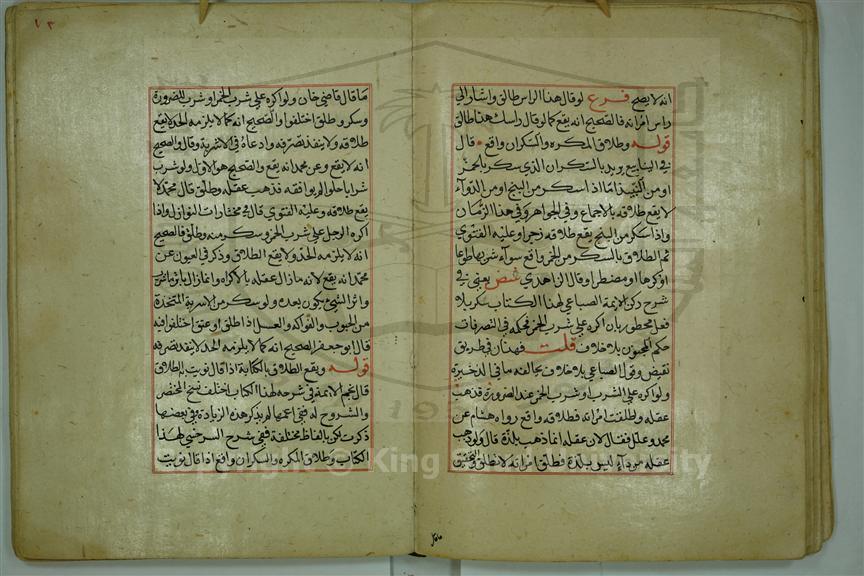 انه لا يصح فرع لو قال هذا الراس طالق واشار الي
راس امرانه فالصحيح انه يقع كما لو قال راسك هذا طالق
قوله وطلاق المكره والسكران واقع قال
في الينابيع يريد بالسكران الذي سكر بالخمر
او من النبيذ امّا اذا سكر من البنج او من الدوآء
لا يقع طلاقه بالاجماع وفي الجواهر وفي هذا الزمان
واذا سكر من البنج يقع طلاقه زجرا وعليه الفتوي
ثم الطلاق بالسكر من الخمر واقع سوآء شربها طوعا
او كرها او مضطرا وقال الزاهدي يعني في
شرح ركن الايمة الصباغي لهذا الكتاب سكر بلا
فعل محظور بان اكره علي شرب الخمر فحكمه في التصرفات
حكم المجنون بلا خلاف قلت فهذان في طريق
نقيض وقول الصباغي بلا خلاف يخالفه ما في الذخيره
ولو اكره علي الشرب او شرب الخمر عند الضرورة فذهب
عقله وطلقت امرانه فطلاقه واقع رواه هشام عن
محمد وعلل فقال لان عقله انما ذهب بلذة قال ولو ذهب
عقله من دوآء ليس بلذة فطلق امرانه لا تطلق والتحقيق
ما قال
ما قال قاضي خان ولو اكره علي شرب الخمر او شرب للضرورة
وسكر وطلق اختلفوا والصحيح انه كما لا يلزمه الحد لا يقع
طلاقه ولا ينفذ تصرفه وادعاه في الاشربة وقال والصحيح
انه لا يقع وعن محمد انه يقع والصحيح هو الاول ولو شرب
شرابا حلوا لم يوافقه فذهب عقله وطلق قال محمد لا
يقع طلاقه وعليه الفتوي قال في مختارات النوازل واذا
اكره الرجل علي شرب الخمر وسكر منه وطلق فالصحيح
انه لا يلزمه الحد ولا يقع الطلاق وذكر في العيون عن
محمد انه يقع لانه ما زال عقله بالاكراه وانما زال بالشرب
واثر الشيء يكون بعده ولو سكر من الاشربة المتخذة
من الحبوب والفواكه والعسل اذا طلق او عتق اختلفوا فيه
قال ابو جعفر الصحيح انه كما لا يلزمه الحد لا ينفذ تصرفه
قوله ويقع الطلاق بالكتابة اذا قال نويت به الطلاق
قال نجم الايمة في شرحه لهذا الكتاب اختلف نسخ المختصر
والشروح له ففي اعمها لم يذكر هذه الزيادة وفي بعضها
ذكرت لكن بالفاظ مختلفة ففي شرح السرخسي لهذا
الكتاب وطلاق المكره والسكران واقع اذا قال نويت